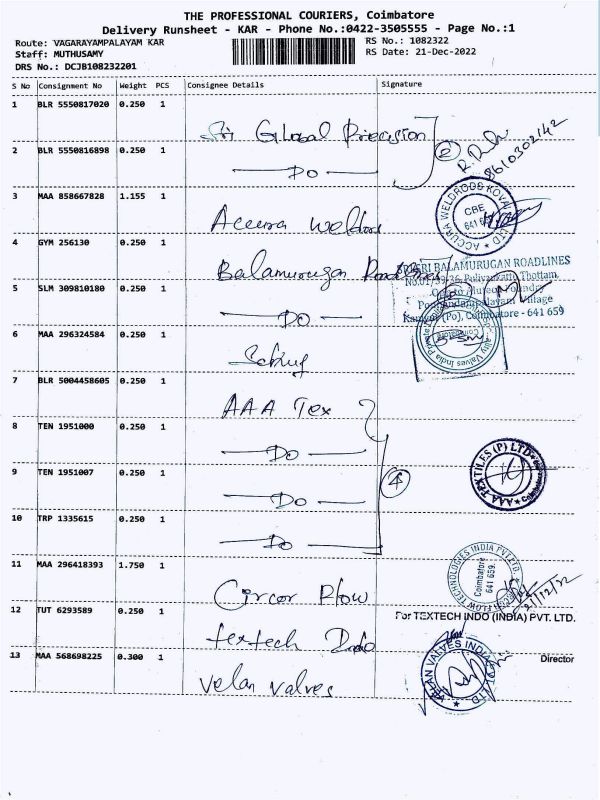 THE PROFESSIONAL COURIERS, Coimbatore
Delivery Runsheet - KAR - Phone No.:0422-3505555 - Page No.:1
Route: VAGARAYAMPALAYAM KAR
RS No.: 1082322
Staff: MUTHUSAMY
RS Date: 21-Dec-2022
DRS No.: DCJB108232201
S No Consignment No Weight PCS Consignee Details Signature
1 BLR 5550817020 0.250 1 Sri Global Precision
2 BLR 5550816898 0.250 1 — Do — 2 8610302142
3 MAA 858667828 1.155 1 Accura weldrods
ACCURA WELDRODS KOVAI LTD
CBE
641
4 GYM 256130 0.250 1 Balamurugan Roadlines
SRI BALAMURUGAN ROADLINES
Thottam,
Village
Coimbatore - 641 659
5 SLM 309810180 0.250 1 — Do —
6 MAA 296324584 0.250 1
Valves India Private
7 BLR 5004458605 0.250 1 AAA Tex
8 TEN 1951000 0.250 1 — Do —
9 TEN 1951007 0.250 1 — Do — 4
AAA TEXTILES (P) LTD
Coimbatore
10 TRP 1335615 0.250 1 — Do —
11 MAA 296418393 1.750 1 Circor Flow
FLOW TECHNOLOGIES INDIA PVT LTD
Coimbatore
641 659.
21/12/22
12 TUT 6293589 0.250 1 textech Indo
For TEXTECH INDO (INDIA) PVT. LTD.
Director
13 MAA 568698225 0.300 1 Velan valves
VELAN VALVES INDIA PVT LTD